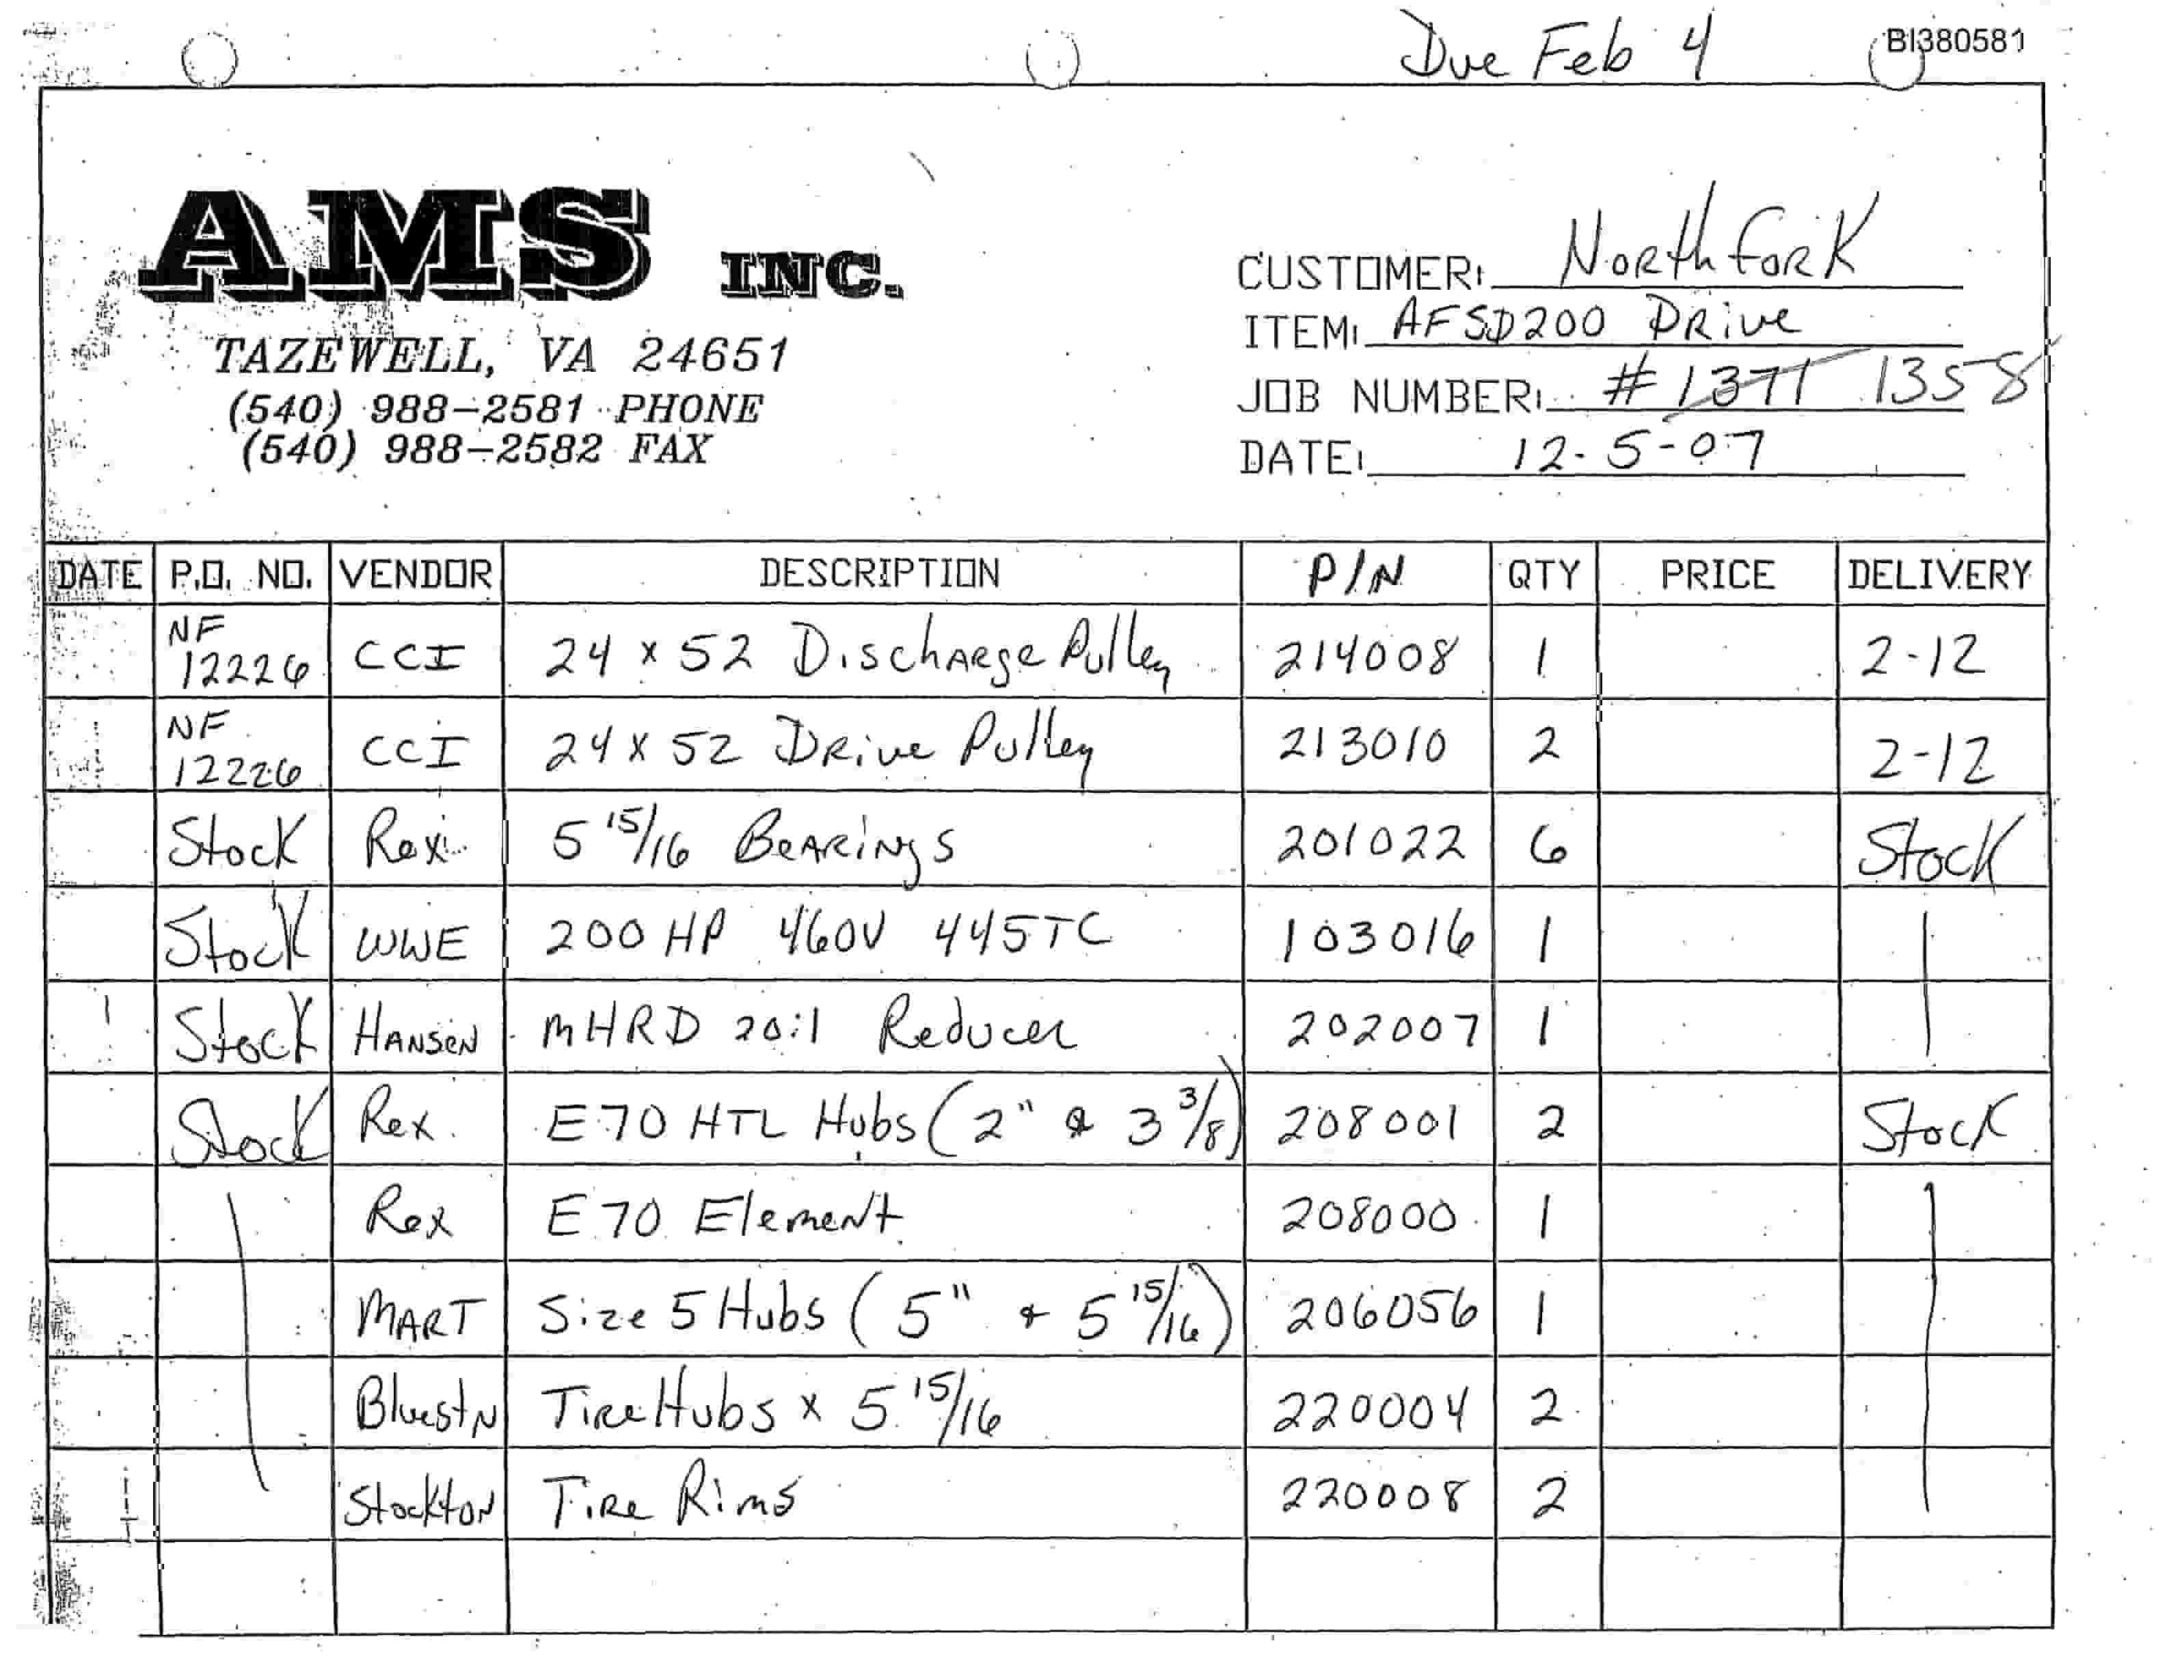 Due Feb 4 BI380581
AMS INC.
TAZEWELL, VA 24651
(540) 988-2581 PHONE
(540) 988-2582 FAX
CUSTOMER: North Fork
ITEM: AFSD200 Drive
JOB NUMBER: # 1371 1358
DATE: 12-5-07
DATE P.O. NO. VENDOR DESCRIPTION P/N QTY PRICE DELIVERY
NF 12226 CCI 24 x 52 Discharge Pulley 214008 1 2-12
NF 12226 CCI 24 x 52 Drive Pulley 213010 2 2-12
Stock Rex 5 15/16 Bearings 201022 6 Stock
Stock WWE 200 HP 460V 445TC 103016 1
Stock Hansen MHRD 20:1 Reducer 202007 1
Stock Rex E70 HTL Hubs (2" & 3 3/8) 208001 2 Stock
Rex E70 Element 208000 1
MART Size 5 Hubs (5" & 5 15/16) 206056 1
Bluestn Tire Hubs x 5 15/16 220004 2
Stockton Tire Rims 220008 2